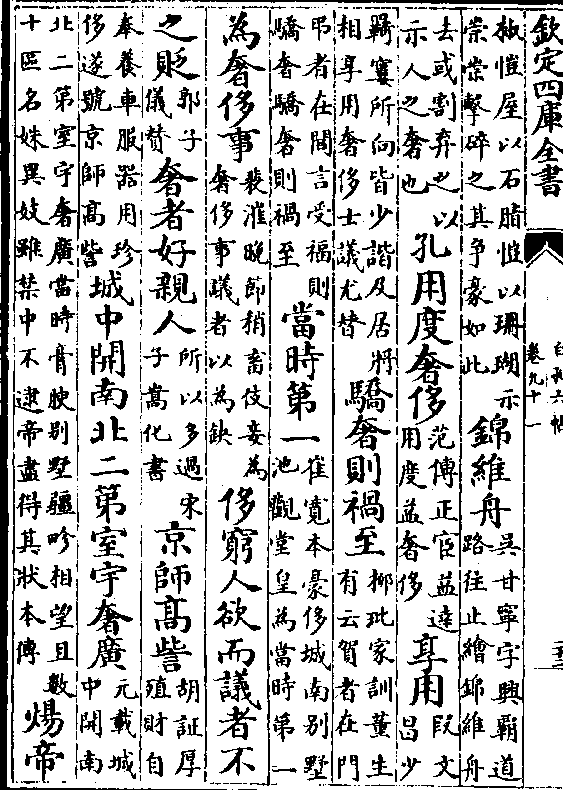 欽定四庫全書
白孔六帖
卷九十一
椒愷屋以石脂愷以珊瑚示
崇崇擊碎之其爭豪如此
錦維舟
吳甘寧字興霸道
路往止繒錦維舟
去或割棄之以
示人之奢也
孔用度奢侈
范傳正宦益達
用度益奢侈
享用
段文
昌少
羈窶所向皆少諧及居將
相享用奢侈士議尤替
驕奢則禍至
柳玭家訓董生
有云賀者在門
弔者在閭言受福則
驕奢驕奢則禍至
當時第一
崔寛本豪侈城南别墅
池觀堂皇為當時第一
為奢侈事
裴漼晩節稍畜伎妾為
奢侈事議者以為缺
侈窮人欲而議者不
之貶
郭子
儀贊
奢者好親人
所以多過宋
子嵩化書
京師髙訾
胡証厚
殖財自
奉養車服器用珍
侈遂號京師髙訾
城中開南北二第室宇奢廣
元載城
中開南
北二第室宇奢廣當時膏腴别墅疆畛相望且數
十區名姝異妓雖禁中不逮帝盡得其狀本傳
煬帝